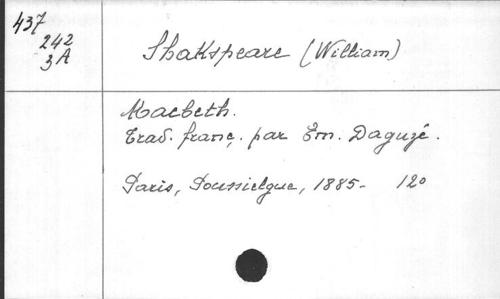 437
242
3A
Shakspeare (William)
Macbeth.
Trad. franç. par Em. Daguzé.
Paris, Poussielgue, 1885- 12°